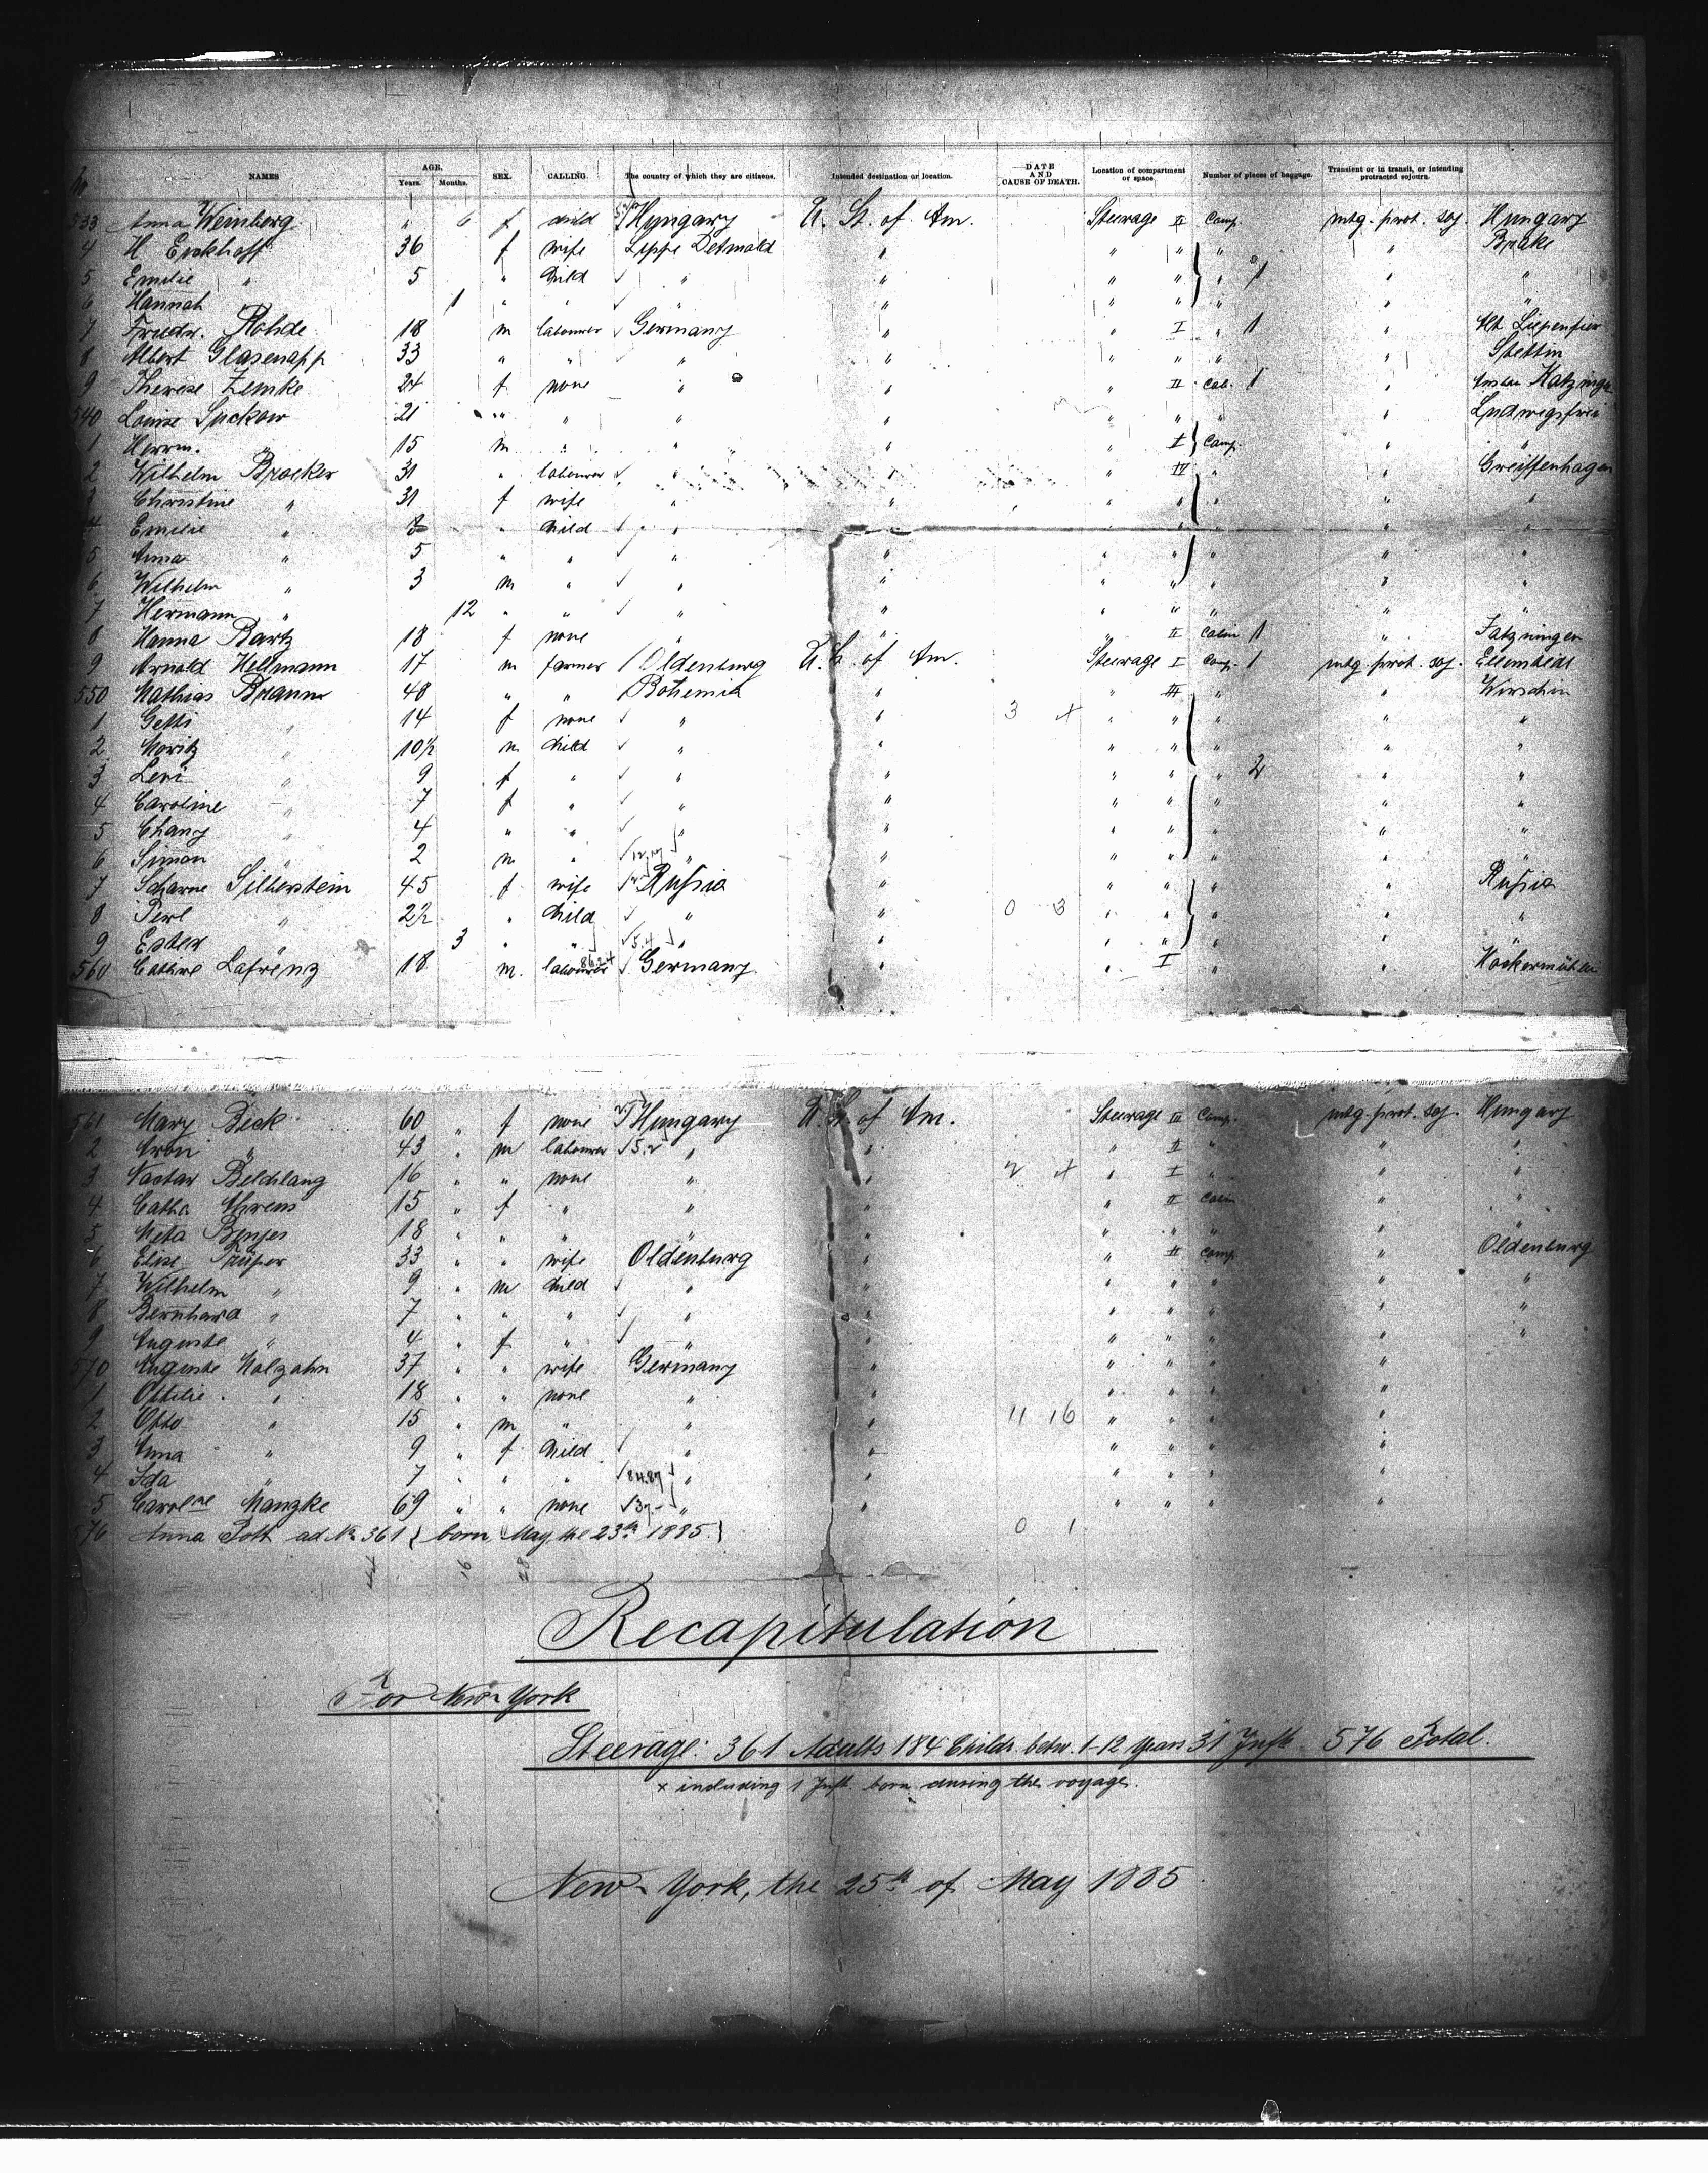 No NAMES AGE. Years. Months. SEX. CALLING. The country of which they are citizens. Intended destination or location. DATE AND CAUSE OF DEATH. Location of compartment or space. Number of pieces of baggage. Transient or in transit, or intending protracted sojourn.
533 Anna Weinberg " 6 f child Hungary U. St. of Am. Steerage II Comp. intg. prot. soj. Hungary
4 H Eickhoff 36 f wife Lippe Detmold " " " " " Brake
5 Emilie " 5 " child " " " " " 1 " "
6 Hannah 1 " " " " " " " " "
7 Friedr. Rohde 18 m labourer Germany " " I " 1 "
8 Albert Glasenapp 33 " " " " " " " " Stettin
9 Therese Zemke 24 f none " " " II Cab. 1 "
540 Louise Suckow 21 " " " " " " " "
1 Herrm. " 15 m " " " " I Comp. " "
2 Wilhelm Broecker 31 " labourer " " " IV " " Greiffenhagen
3 Christine " 31 f wife " " " " " "
4 Emilie " " child " " " " " " "
5 Anna " 5 " " " " " " " " "
6 Wilhelm " 3 m " " " " " " " "
7 Hermann " 12 " " " " " " " " "
8 Hanna Bartz 18 f none " " " II Cabin 1 "
9 Arnold Hellmann 17 m farmer Oldenburg U. St. of Am. Steerage I Comp. 1 intg. prot. soj.
550 Mathias Braun 48 " " Bohemia " " III " " Wirschin
1 Getti " 14 f none " " 3 4 " " " " "
2 Moritz " 10½ m child " " " " " " "
3 Leni " 9 f " " " " " " 2 " "
4 Caroline " 7 f " " " " " " " "
5 Chany " 4 " " " " " " " " "
6 Simon " 2 m " " " " " " " "
7 Silberstein 45 f wife Rußia " " " " " Rußia
8 Perl " 2½ " child " " 0 3 " " " " "
9 Ester " 3 " " 5.4 " " " " " " "
560 Lafrenz 18 m. labourer Germany " " I "
561 Mary Beck 60 " f none Hungary U. St. of Am. Steerage III Comp. intg. prot. soj. Hungary
2 Aron " 43 " m labourer " " " II " " "
3 16 " " none " " 2 4 " I " " "
4 Catha Ahrens 15 " f " " " " II Cabin " "
5 Meta Benjes 18 " " " " " " " " " "
6 Elise Trüper 33 " " wife Oldenburg " " II Comp. " Oldenburg
7 Wilhelm " 9 " m child " " " " " " "
8 Bernhard " 7 " " " " " " " " " "
9 Auguste " 4 " f " " " " " " " "
570 Auguste Malzahn 37 " " wife Germany " " " " "
1 Ottilie " 18 " " none " " " " " "
2 Otto " 15 " m " " " 11 16 " " " "
3 Anna " 9 " f child " " " " " "
4 Ida " 7 " " " 84.87 " " " " " "
5 Caroline Manzke 69 " " none " " " " "
576 Anna Poth ad No 361 { born May the 23th 1885. } 0 1
44 16 28
Recapitulation
For New-York
Steerage: 361 Adults 184 Childr. betw. 1-12 years 31 × Inft 576 Total.
× including 1 Inft. born during the voyage.
New-York, the 25th of May 1885